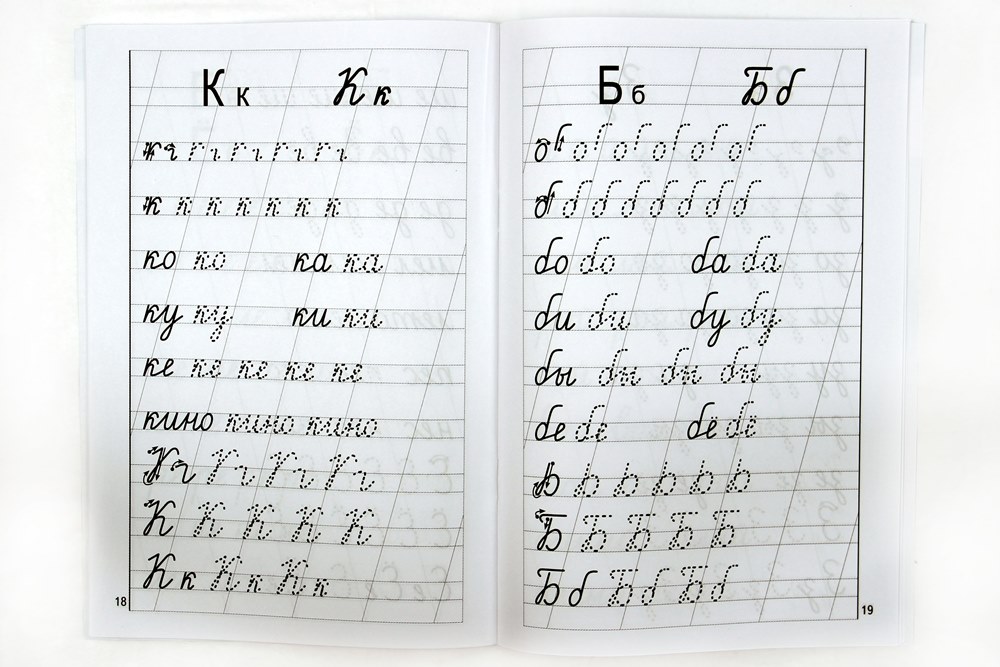 К к К к
к к к к к к к
ко ко ка ка
ку ку ки ки
ке ке ке ке ке
кино кино кино
К К К К К
К к К к К к
18
Б б Б б
б б б б б б б б
бо бо ба ба
би би бу бу
бы бы бы бы
бе бе бё бё
Б Б Б Б Б
Б б Б б Б б
19